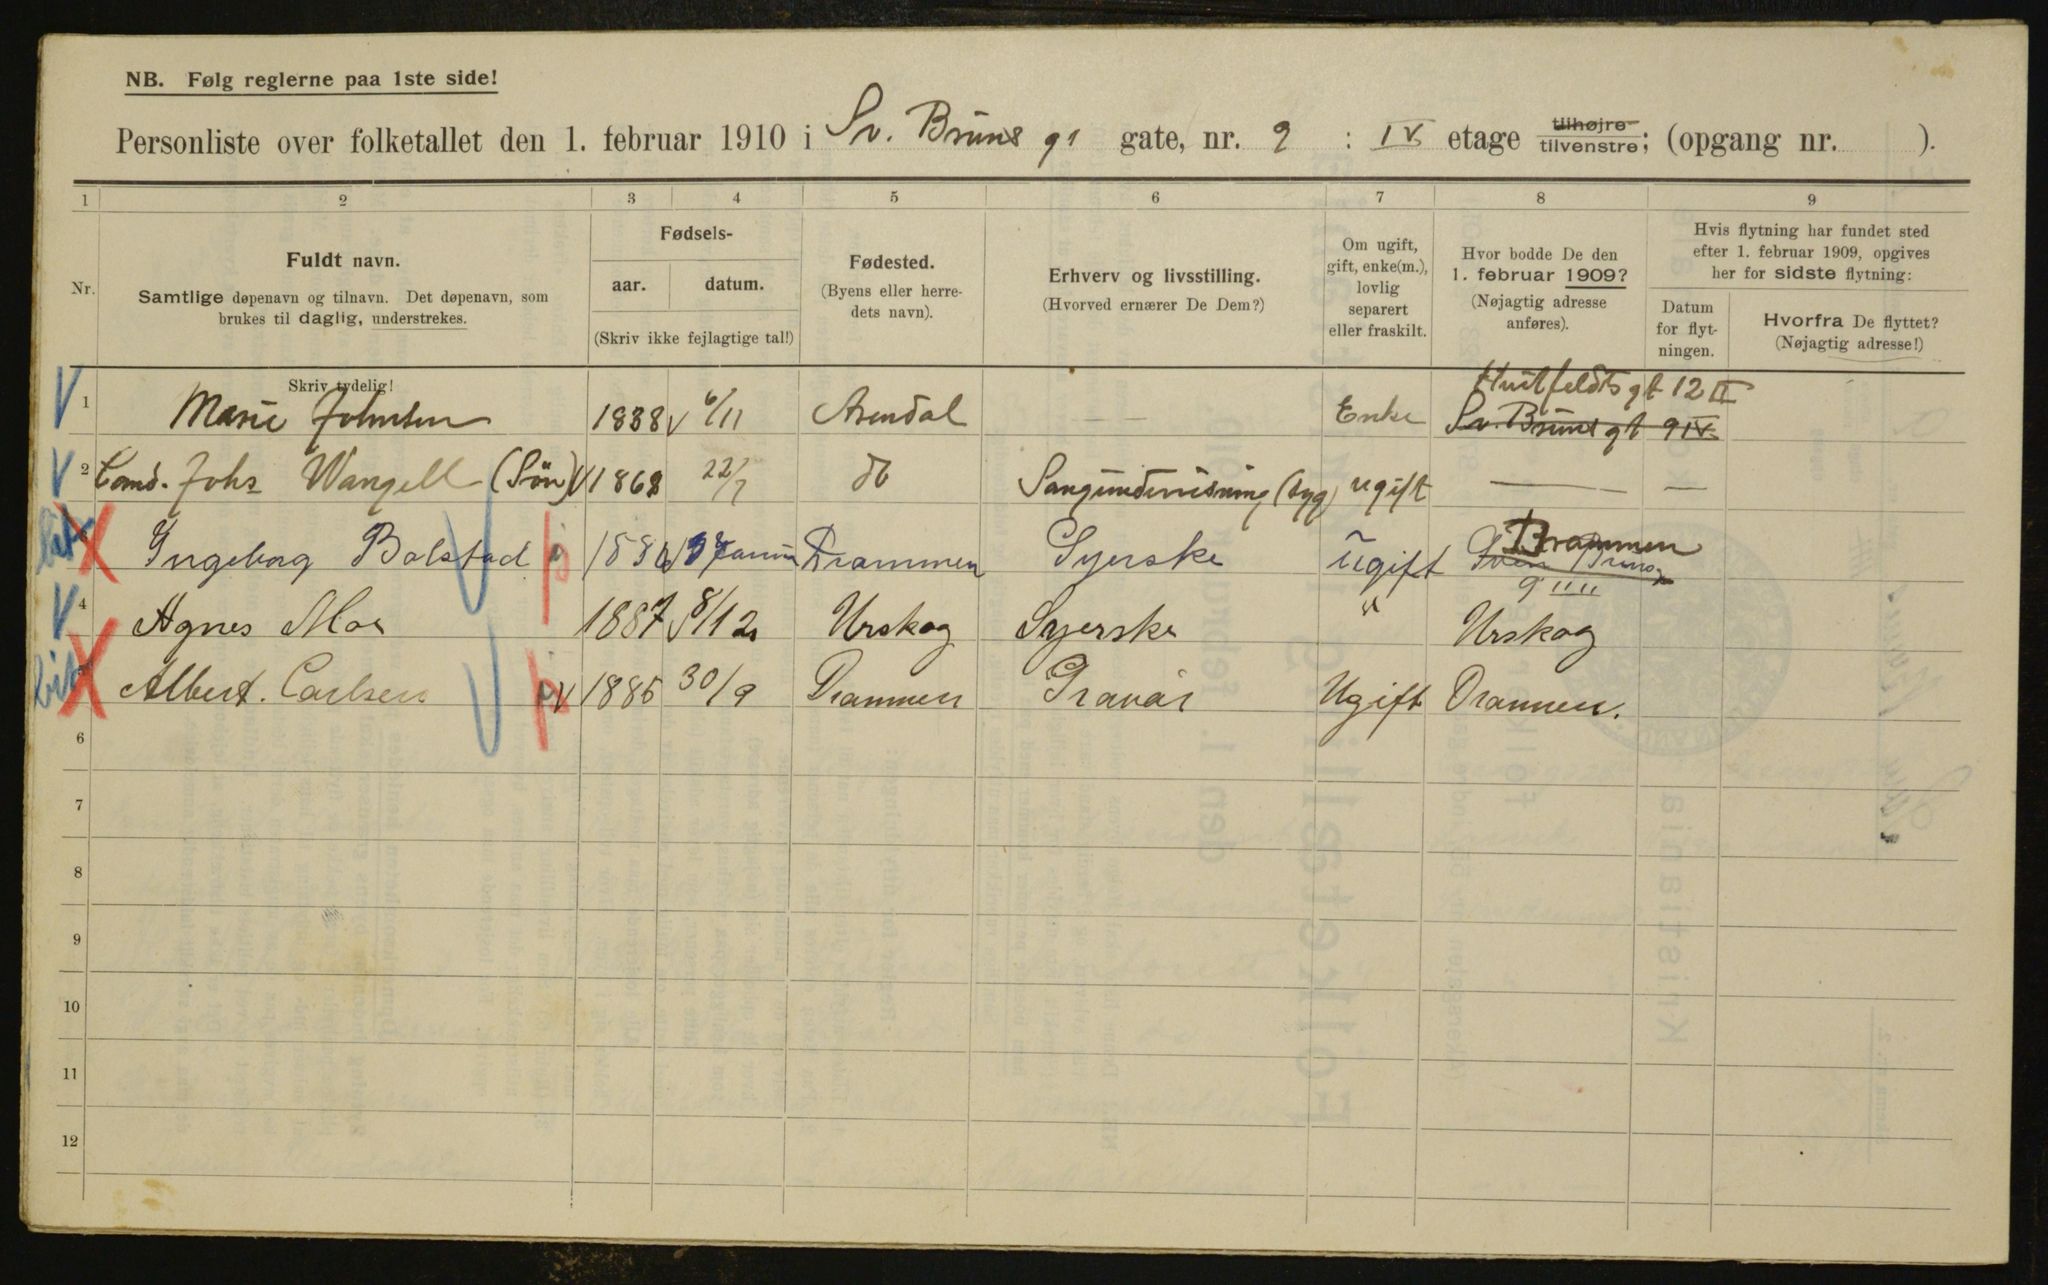 NB. Følg reglerne paa 1ste side!
Personliste over folketallet den 1. februar 1910 i Sv. Bruns gt gate, nr. 9 : IV etage tilhøjre tilvenstre; (opgang nr. ).
1 2 3 4 5 6 7 8 9
Nr.
Fuldt navn.
Samtlige døpenavn og tilnavn. Det døpenavn, som
brukes til daglig, understrekes.
Skriv tydelig!
Fødsels-
aar. datum.
(Skriv ikke fejlagtige tal!)
Fødested.
(Byens eller herre-
dets navn).
Erhverv og livsstilling.
(Hvorved ernærer De Dem?)
Om ugift,
gift, enke(m.),
lovlig
separert
eller fraskilt.
Hvor bodde De den
1. februar 1909?
(Nøjagtig adresse
anføres).
Hvis flytning har fundet sted
efter 1. februar 1909, opgives
her for sidste flytning:
Datum
for flyt-
ningen.
Hvorfra De flyttet?
(Nøjagtig adresse!)
Huitfeldts gt 12 II
1 Marie Johnsen 1838 6/11 Arendal — Enke Sv. Bruns gt 9 IV
2 Cand. Johs Wangell (Sön) 1868 22/7 do Sangundervisning (syg) ugift — —
Drammen
Ingeborg Bolstad 1886 Januar Drammen Syerske Ugift Sven Bruns
9 """
4 Agnes Moe 1887 8/12 Urskog Syerske " Urskog
Albert Carlsen 1885 30/9 Drammen Gravör Ugift Drammen.
6
7
8
9
10
11
12